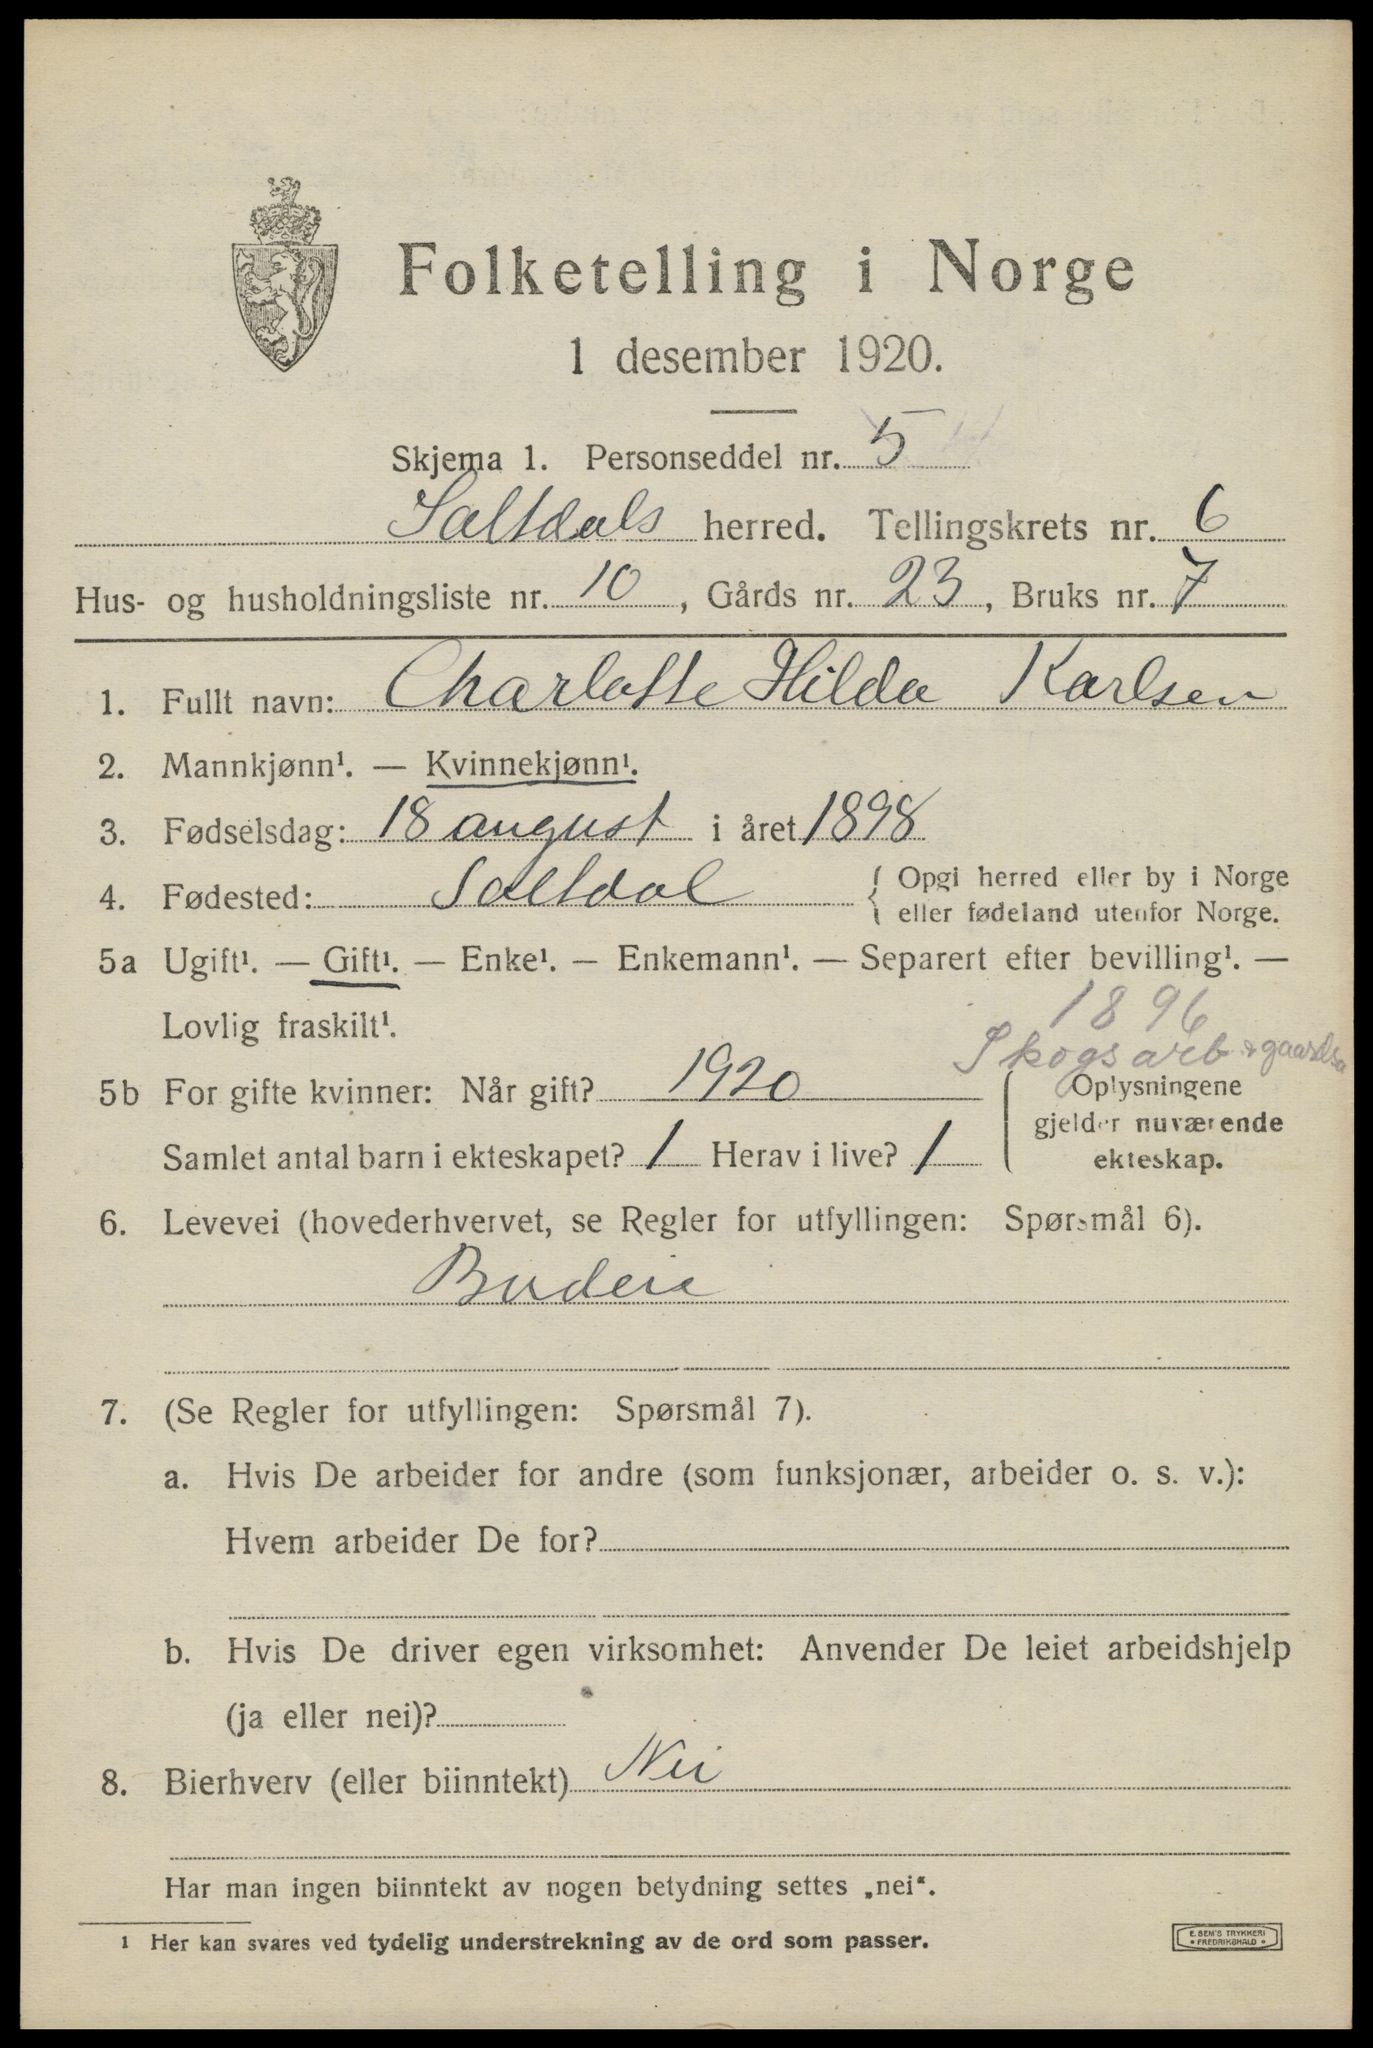 Folketelling i Norge
1 desember 1920.
Skjema 1. Personseddel nr. 5 4
Saltdals herred. Tellingskrets nr. 6
Hus- og husholdningsliste nr. 10, Gårds nr. 23, Bruks nr. 7
1. Fullt navn: Charlotte Hilda Karlsen
2. Mannkjønn¹. — Kvinnekjønn¹.
3. Fødselsdag: 18 august i året 1898
4. Fødested: Saltdal { Opgi herred eller by i Norge
eller fødeland utenfor Norge.
5a Ugift¹. — Gift¹. — Enke¹. — Enkemann¹. — Separert efter bevilling¹. —
Lovlig fraskilt¹.
1896
Skogsarb
5b For gifte kvinner: Når gift? 1920
Samlet antal barn i ekteskapet? 1 Herav i live? 1
Oplysningene
gjelder nuværende
ekteskap.
6. Levevei (hovederhvervet, se Regler for utfyllingen: Spørsmål 6).
Budeie
7. (Se Regler for utfyllingen: Spørsmål 7).
a. Hvis De arbeider for andre (som funksjonær, arbeider o. s. v.):
Hvem arbeider De for?
b. Hvis De driver egen virksomhet: Anvender De leiet arbeidshjelp
(ja eller nei)?
8. Bierhverv (eller biinntekt) Nei
Har man ingen biinntekt av nogen betydning settes „nei“.
¹ Her kan svares ved tydelig understrekning av de ord som passer.
E. SEM'S TRYKKERI
• FREDRIKSHALD •